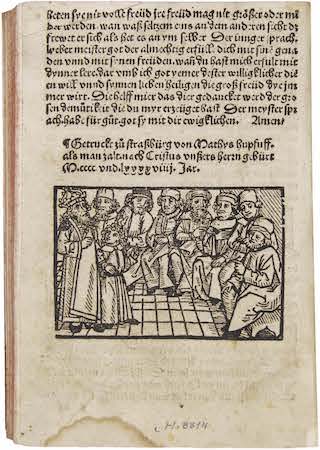 beten sye nit voll freüd ire freüd mag nit grösser oder mi
der werden. wañ selten eins an dem andren sicht dz
frewet er sich als het es an ym selber Der iunger sprach.
lieber meister got der almechtig erfüll dich mit sinẽ gena
den vnnd mit sẽnen freüden. wañ du hast mich erfült mit
dynner lere dar vmb ich got yemer dester williglicher die
en will vnnd synnen lieben heiligen die groß freüd dye im
mer wirt. Die helff mier das dier gedancket werd der gro
sen demůtikeit die du myr erzöuget hast Der meyster spra
ch. habe für gůt. got sy mit dir ewigklichen. Amen
¶ Getruckt zů straßburg von Mathys hupfuff.
als man zalt nach Cristus vnsers herrn gebürt
M.cccc vnd. lxxxxviiij. Jar.
H. 8814